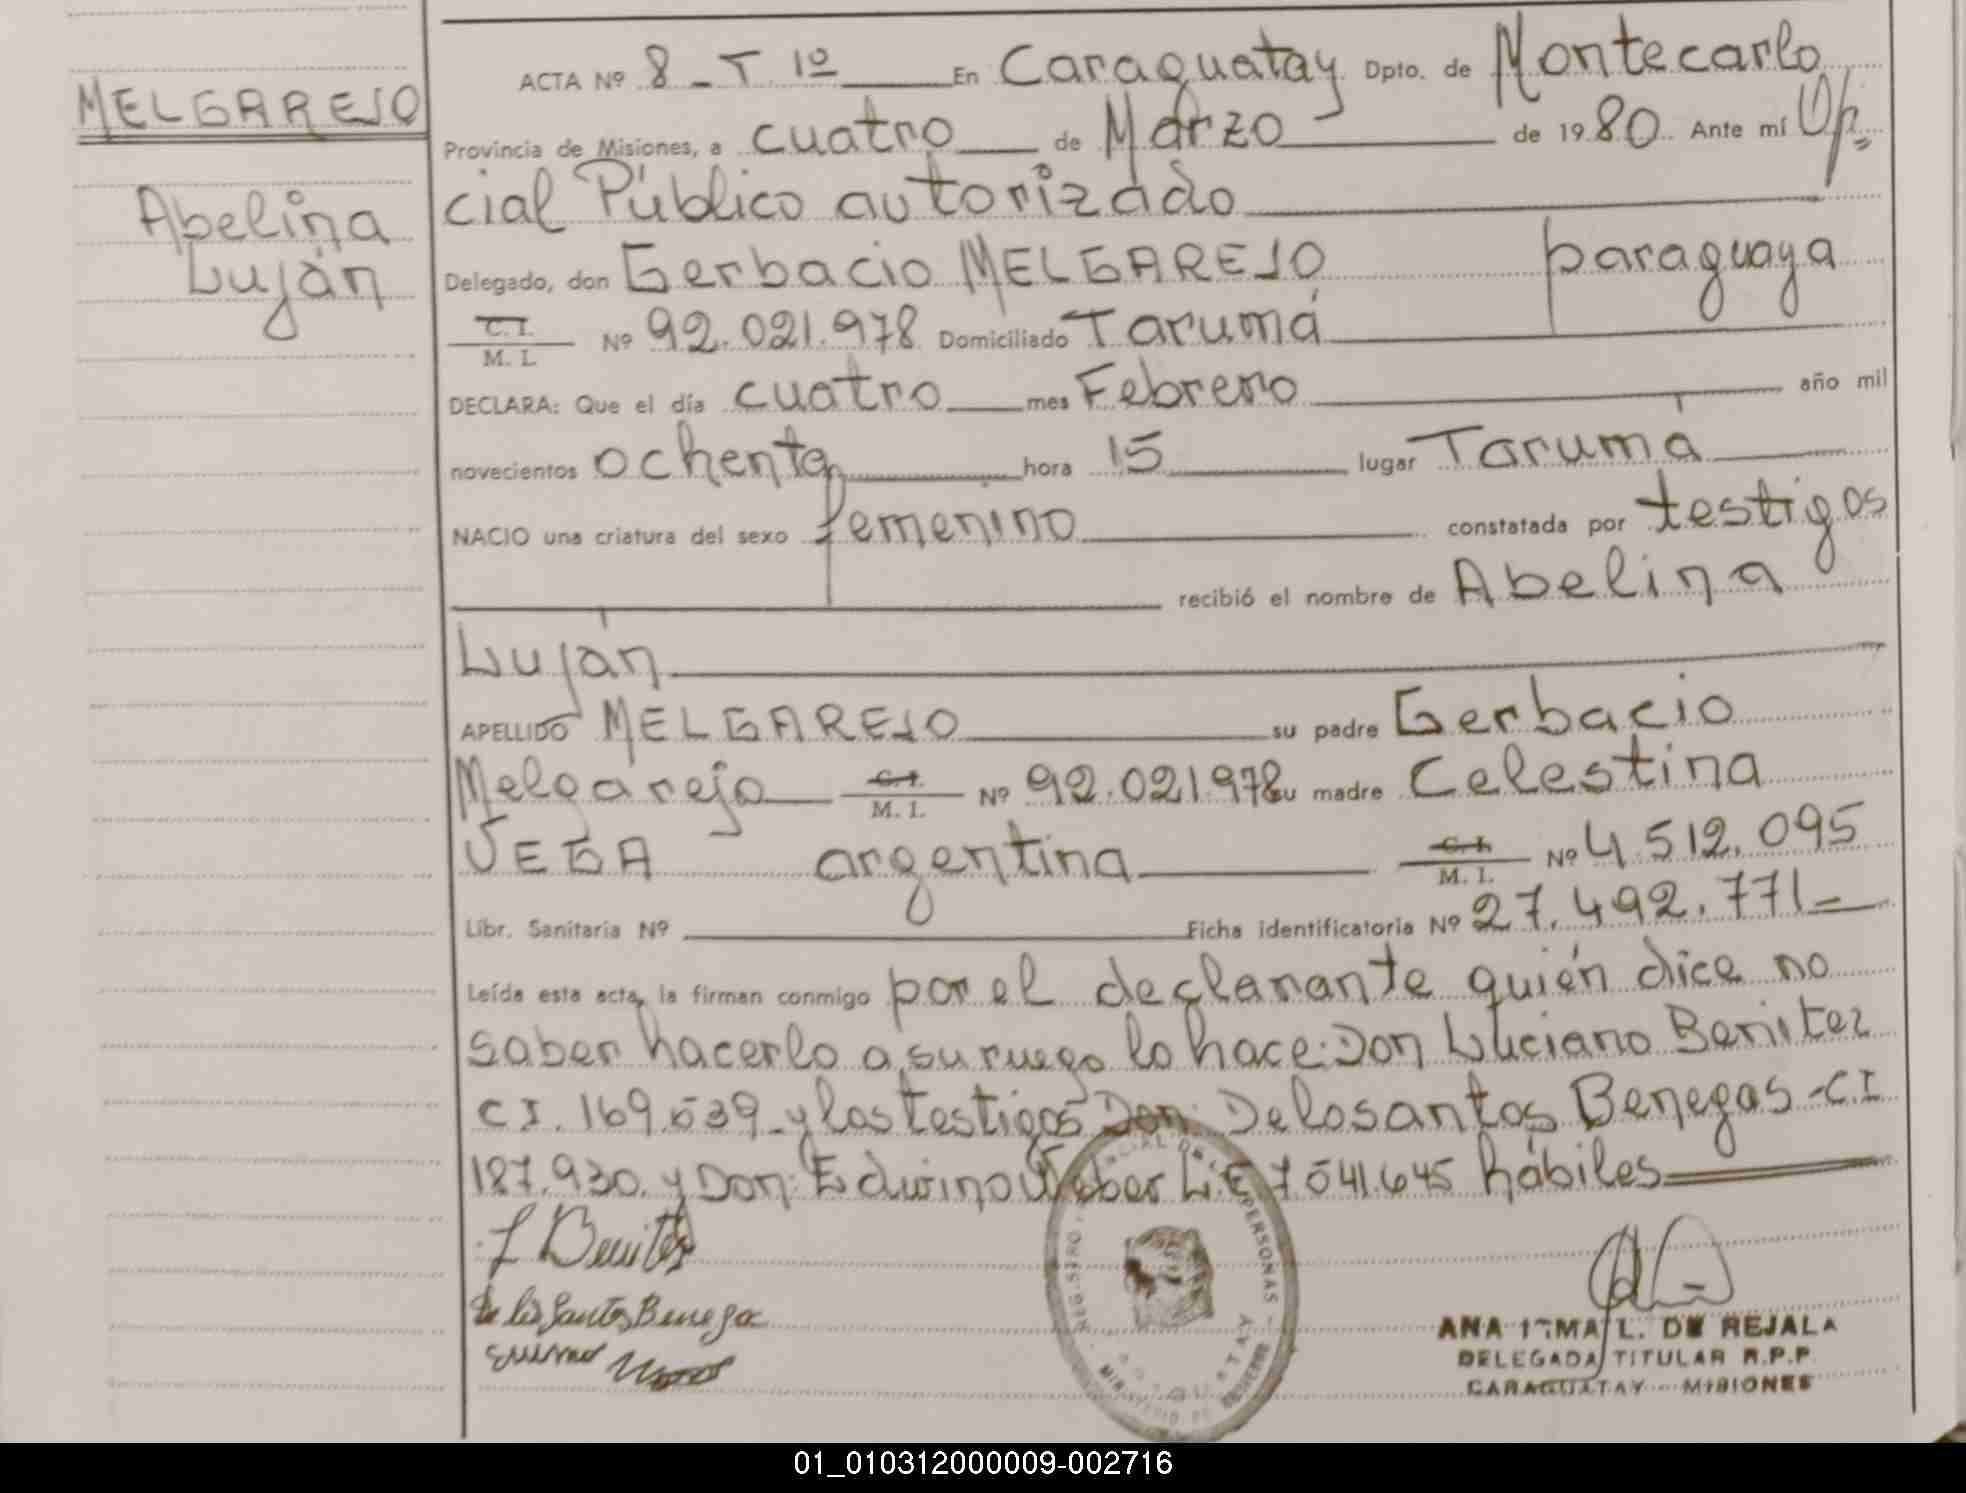 MELGAREJO
Abelina
Luján
ACTA Nº 8 - T 1º En Caraguatay Dpto. de Montecarlo
Provincia de Misiones, a cuatro de Marzo de 1980. Ante mí Ofi=
cial Público autorizado
Delegado, don Gerbacio MELGAREJO paraguaya
C.I.
M. I. Nº 92.021.978 Domiciliado Tarumá
DECLARA: Que el día cuatro mes Febrero año mil
novecientos ochenta hora 15 lugar Tarumá
NACIO una criatura del sexo femenino constatada por testigos
recibió el nombre de Abelina
Luján
APELLIDO MELGAREJO su padre Gerbacio
Melgarejo C.I.
M. I. Nº 92.021.978 su madre Celestina
VEGA argentina C.I.
M. I. Nº 4.512.095
Libr. Sanitaria Nº Ficha identificatoria Nº 27.492.771-
Leída esta acta, la firman conmigo por el declarante quién dice no
saber hacerlo a su ruego lo hace: Don Luciano Benitez
CI. 169.639 y los testigos Don: Delosantos Benegas - CI
187.930. y Don: Edwino Weber L.E 7541.645 hábiles
L Benitez
de los Santos Benega
REGISTRO PROVINCIAL DE LAS PERSONAS
CARAGUATAY
MINISTERIO DE GOBIERNO
ANA IRMA L. DE REJALA
DELEGADA TITULAR R.P.P
CARAGUATAY - MISIONES
01_010312000009-002716